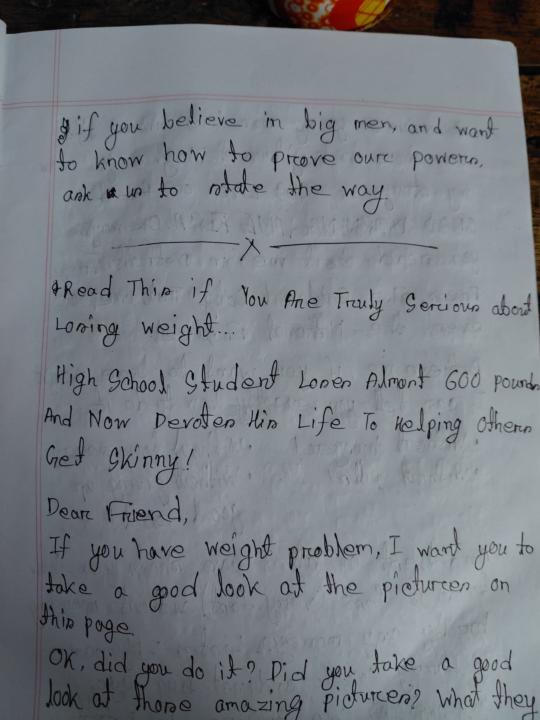 if you believe in big men, and want
to know how to prove our power,
ask us to state the way.
X
Read This if You Are Truly Serious about
Losing weight...
High School Student Loses Almost 600 pounds
And Now Devotes His Life To Helping Others
Get Skinny!
Dear Friend,
If you have weight problem, I want you to
take a good look at the pictures on
this page
OK, did you do it? Did you take a good
look at those amazing pictures? What they